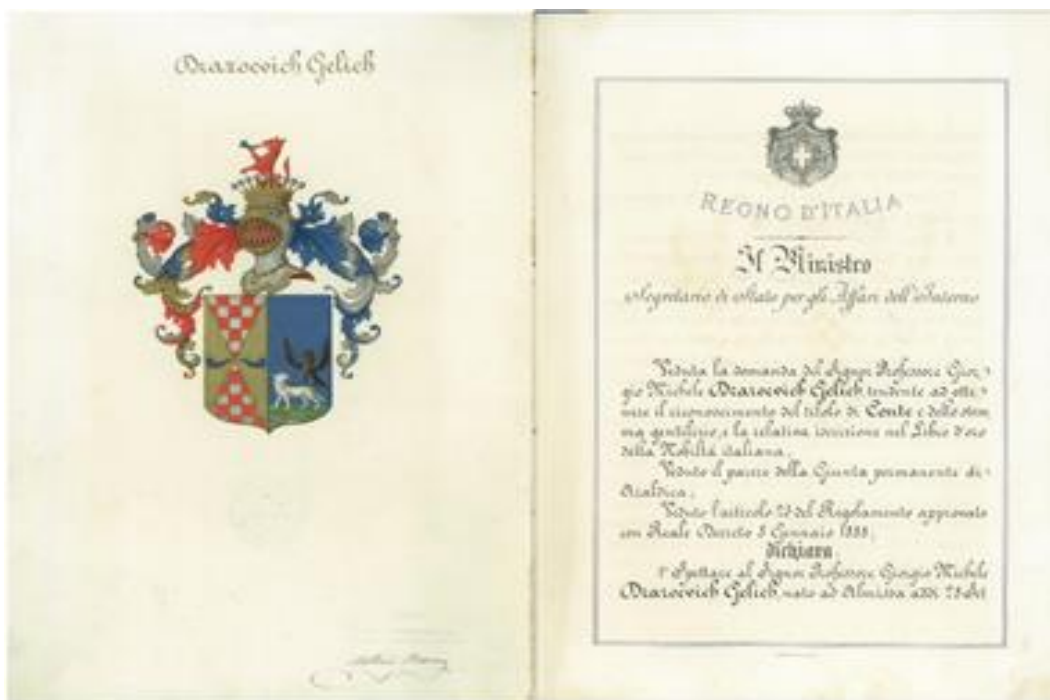 Drazoevich Gelich
REGNO D'ITALIA
Il Ministro
Segretario di Stato per gli Affari dell'Interno
Veduta la domanda del Signor Professore Gior-
gio Michele Drazoevich Gelich, tendente ad otte-
nere il riconoscimento del titolo di Conte e dello stem
ma gentilizio, e la relativa iscrizione nel Libro d'oro
della Nobiltà italiana;
Veduto il parere della Giunta permanente di
Araldica;
Veduto l'articolo del Regolamento approvato
con Reale Decreto Gennaio
dichiara
1º Spettare al Signor Professore Giorgio Michele
Drazoevich Gelich, nato ad Almissa addì